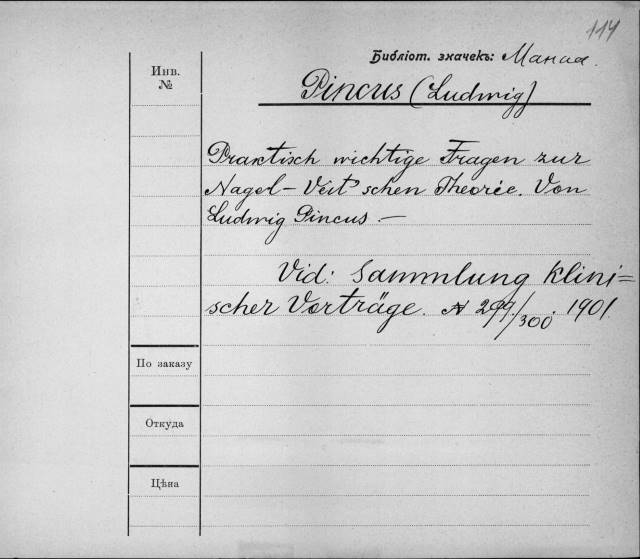 114
Библіот. значекъ:
Инв.
№
Pincus (Ludwig)
Praktisch wichtige Fragen zur
Nagel-Veit'schen Theorie. Von
Ludwig Pincus. —
Vid: Sammlung klini=
scher Vorträge. № 299/300. 1901
По заказу
Откуда
Цѣна